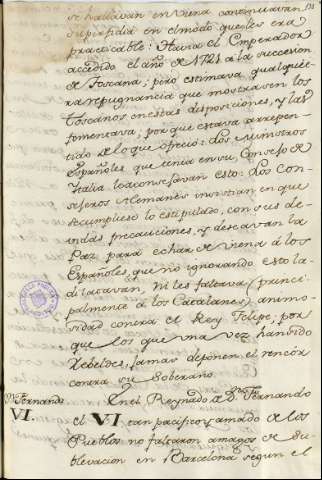 se hallavan en Viena continuavan
su perfidia en el modo que les era
practicable: Havia el Emperador
accedido el año de 1721 a la succesion
de Toscana; pero estimava qualquie-
ra repugnancia que mostrasen los
Toscanos en estas disposiciones, y las
fomentava, por que estava arrepen-
tido de lo que ofrecio: Los Ministros
Españoles que tenia en su Consejo de
Italia lo aconsejavan esto: Los Con-
sejeros Alemanes insistian en que
se cumpliese lo estipulado, con sus de-
vidas precauciones, y deseavan la
Paz para echar de Viena á los
Españoles, que no ignorando esto la
dilatavan, ni les faltava (princi-
palmente á los Catalanes) animo-
sidad contra el Rey Felipe; por
que los que una vez han sido
Rebeldes, jamas deponen el rencor
contra su Soberano.
Dn. Fernando
VI.
En el Reynado de Dn. Fernando
el VI tan pacifico y amado de los
Pueblos no faltaron amagos de Su-
blevacion en Barcelona segun el